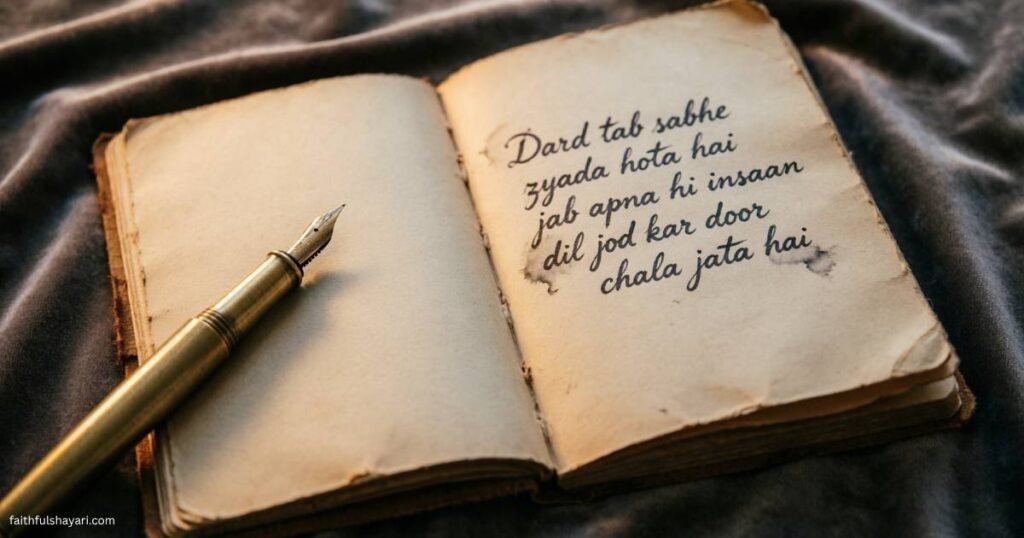 Dard tab sabhe
zyada hota hai
jab apna hi insaan
dil jod kar door
chala jata hai
faithfulshayari.com